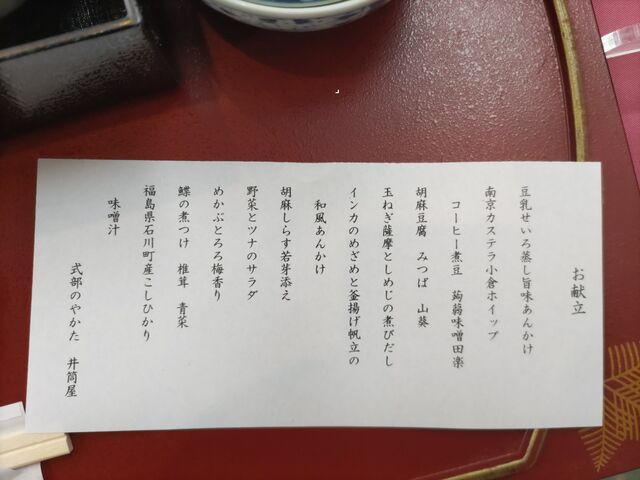 お献立
豆乳せいろ蒸し旨味あんかけ
南京カステラ小倉ホイップ
コーヒー煮豆 蒟蒻味噌田楽
胡麻豆腐 みつば 山葵
玉ねぎ薩摩としめじの煮びだし
インカのめざめと釜揚げ帆立の
和風あんかけ
胡麻しらす若芽添え
野菜とツナのサラダ
めかぶとろろ梅香り
鰈の煮つけ 椎茸 青菜
福島県石川町産こしひかり
味噌汁
式部のやかた 井筒屋